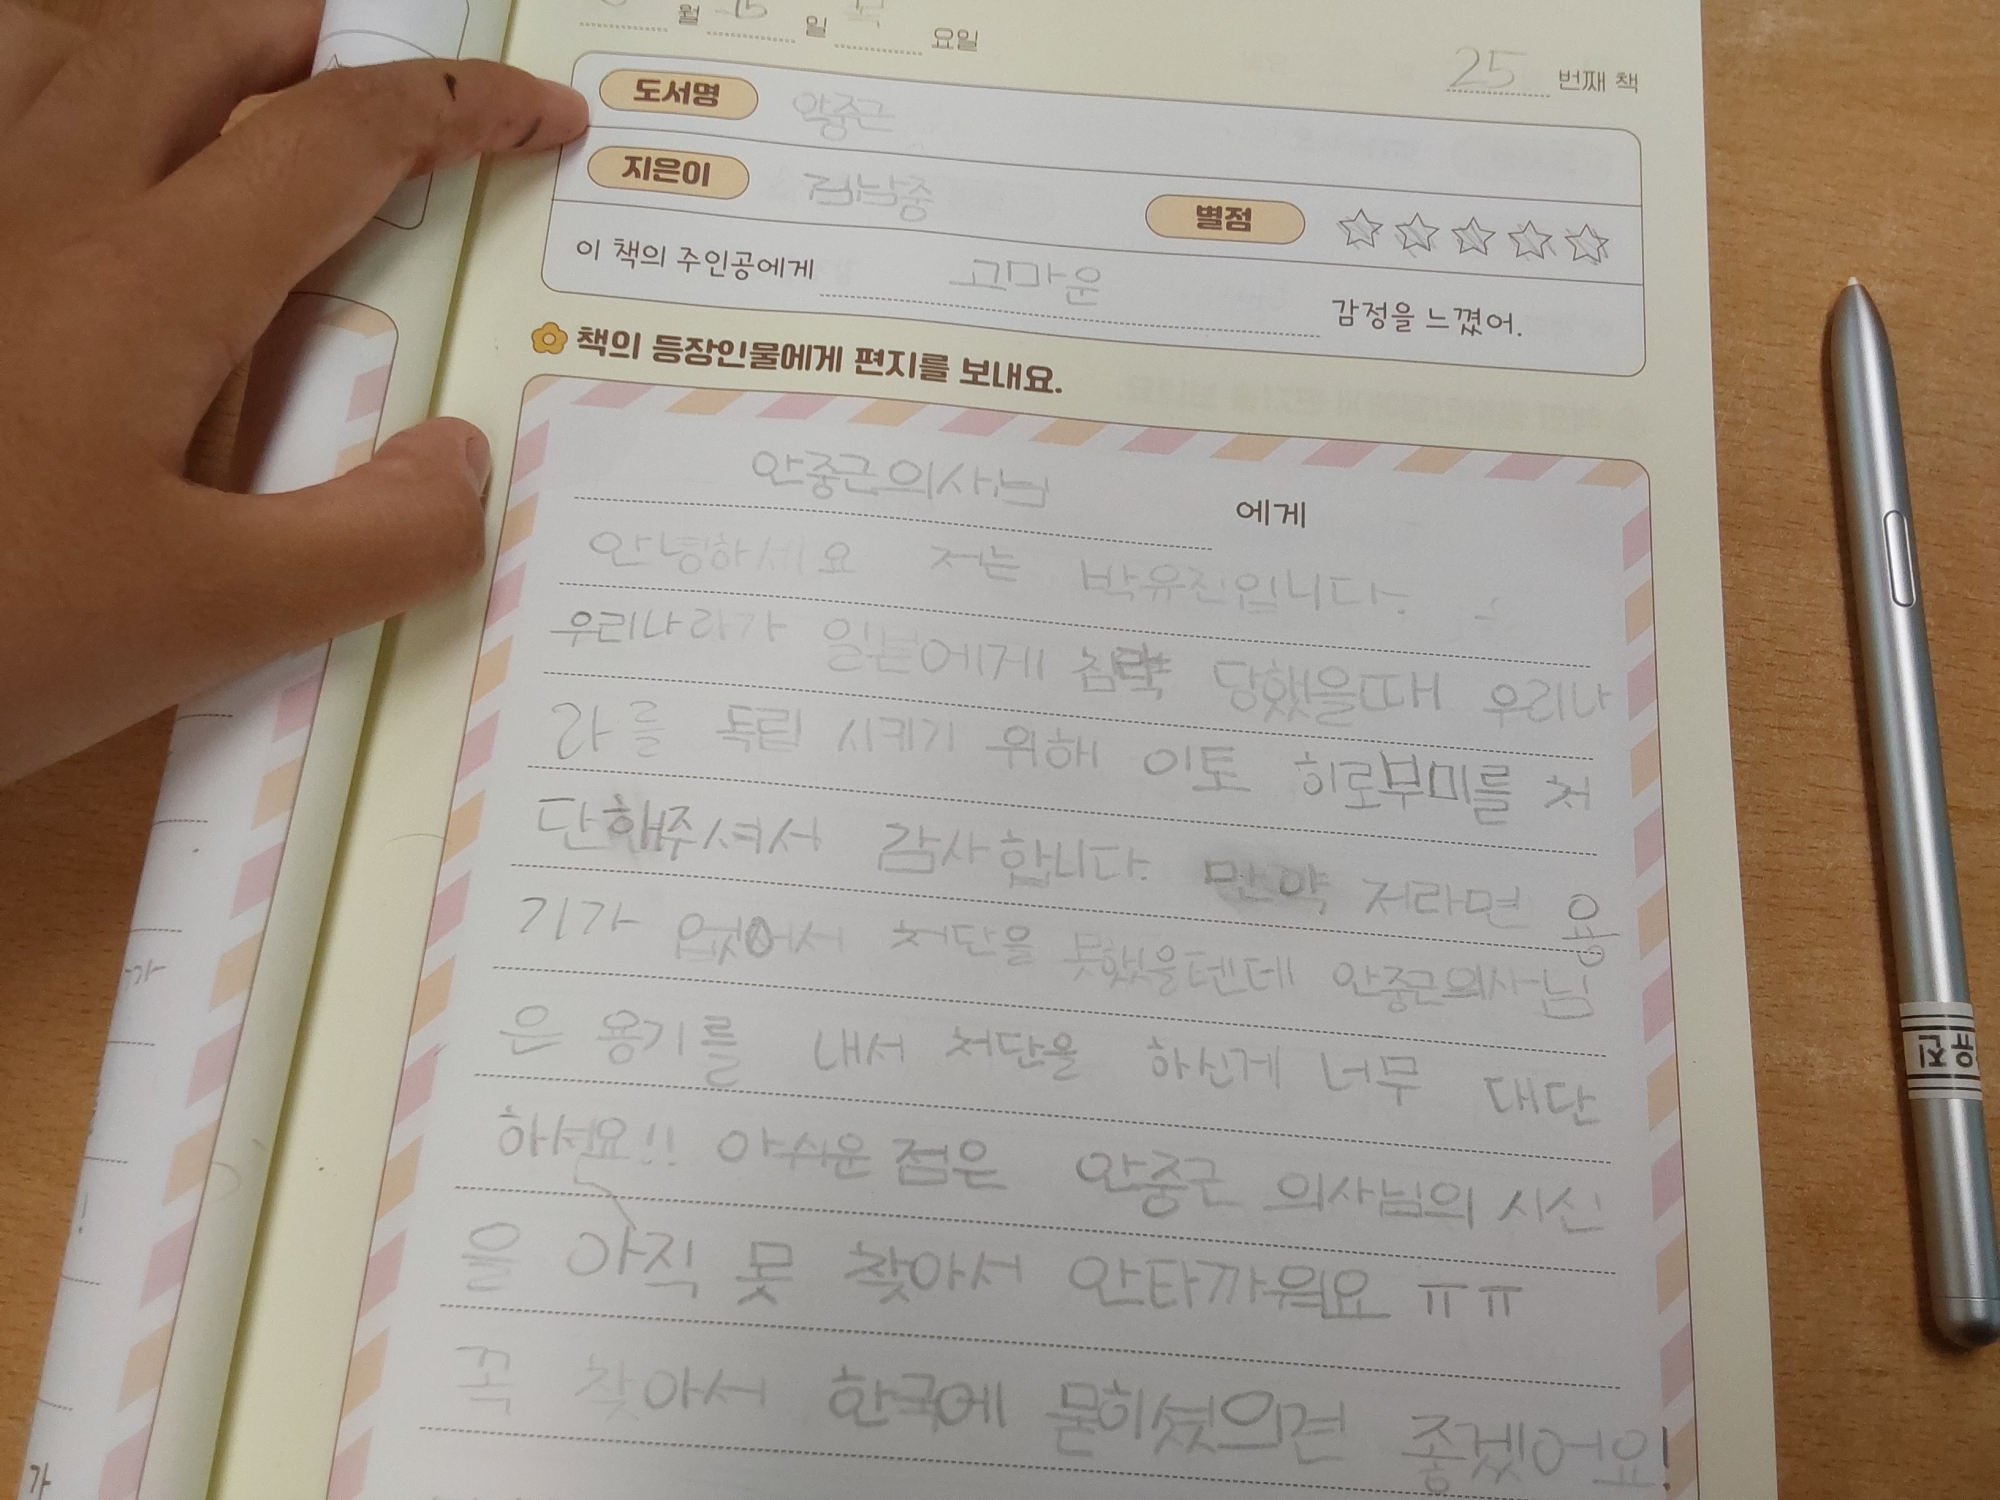 월 15 일 목 요일
25 번째 책
도서명 안중근
지은이 김남중
별점
이 책의 주인공에게 고마운 감정을 느꼈어.
책의 등장인물에게 편지를 보내요.
안중근의사님 에게
안녕하세요 저는 박유진입니다.
우리나라가 일본에게 침략 당했을때 우리나
라를 독립 시키기 위해 이토 히로부미를 처
단해주셔서 감사합니다. 만약 저라면 용
기가 없어서 처단을 못했을텐데 안중근의사님
은 용기를 내서 처단을 하신게 너무 대단
하셔요!! 아쉬운 점은 안중근 의사님의 시신
을 아직 못 찾아서 안타까워요 ㅠㅠ
꼭 찾아서 한국에 묻히셨으면 좋겠어요!
가
가
유진